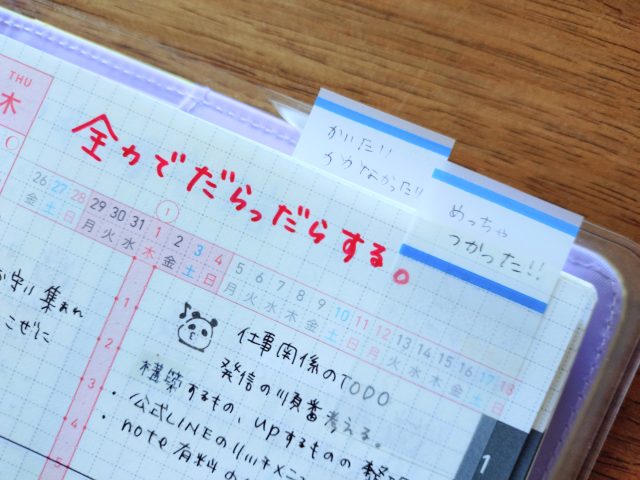 THU
木
全力でだらっだらする。
かいたり
かかなかったり
めっちゃ
つかった!!
26 27 28 29 30 31 1 2 3 4 5 6 7 8 9 10 11 12 13 14 15 16 17 18
金 土 日 月 火 水 木 金 土 日 月 火 水 木 金 土 日 月 火 水 木 金 土 日
1
1
2
3
4
5
お守り集めれ
こぜに
仕事関係のTODO
発信の順番考える。
構築するもの、upするものの整理
・公式LINEのリッチメニ
・note有料の
1